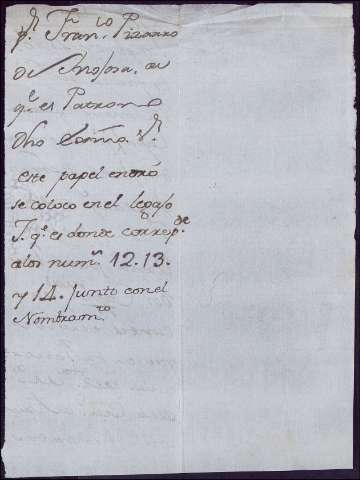 pr. Franco. Pizarro
de
qe. es Patrono
dho
este papel entró
se coloco en el legajo
J. qe. es donde correspde.
a los nums. 12. 13.
y 14. junto con el
Nombramto.